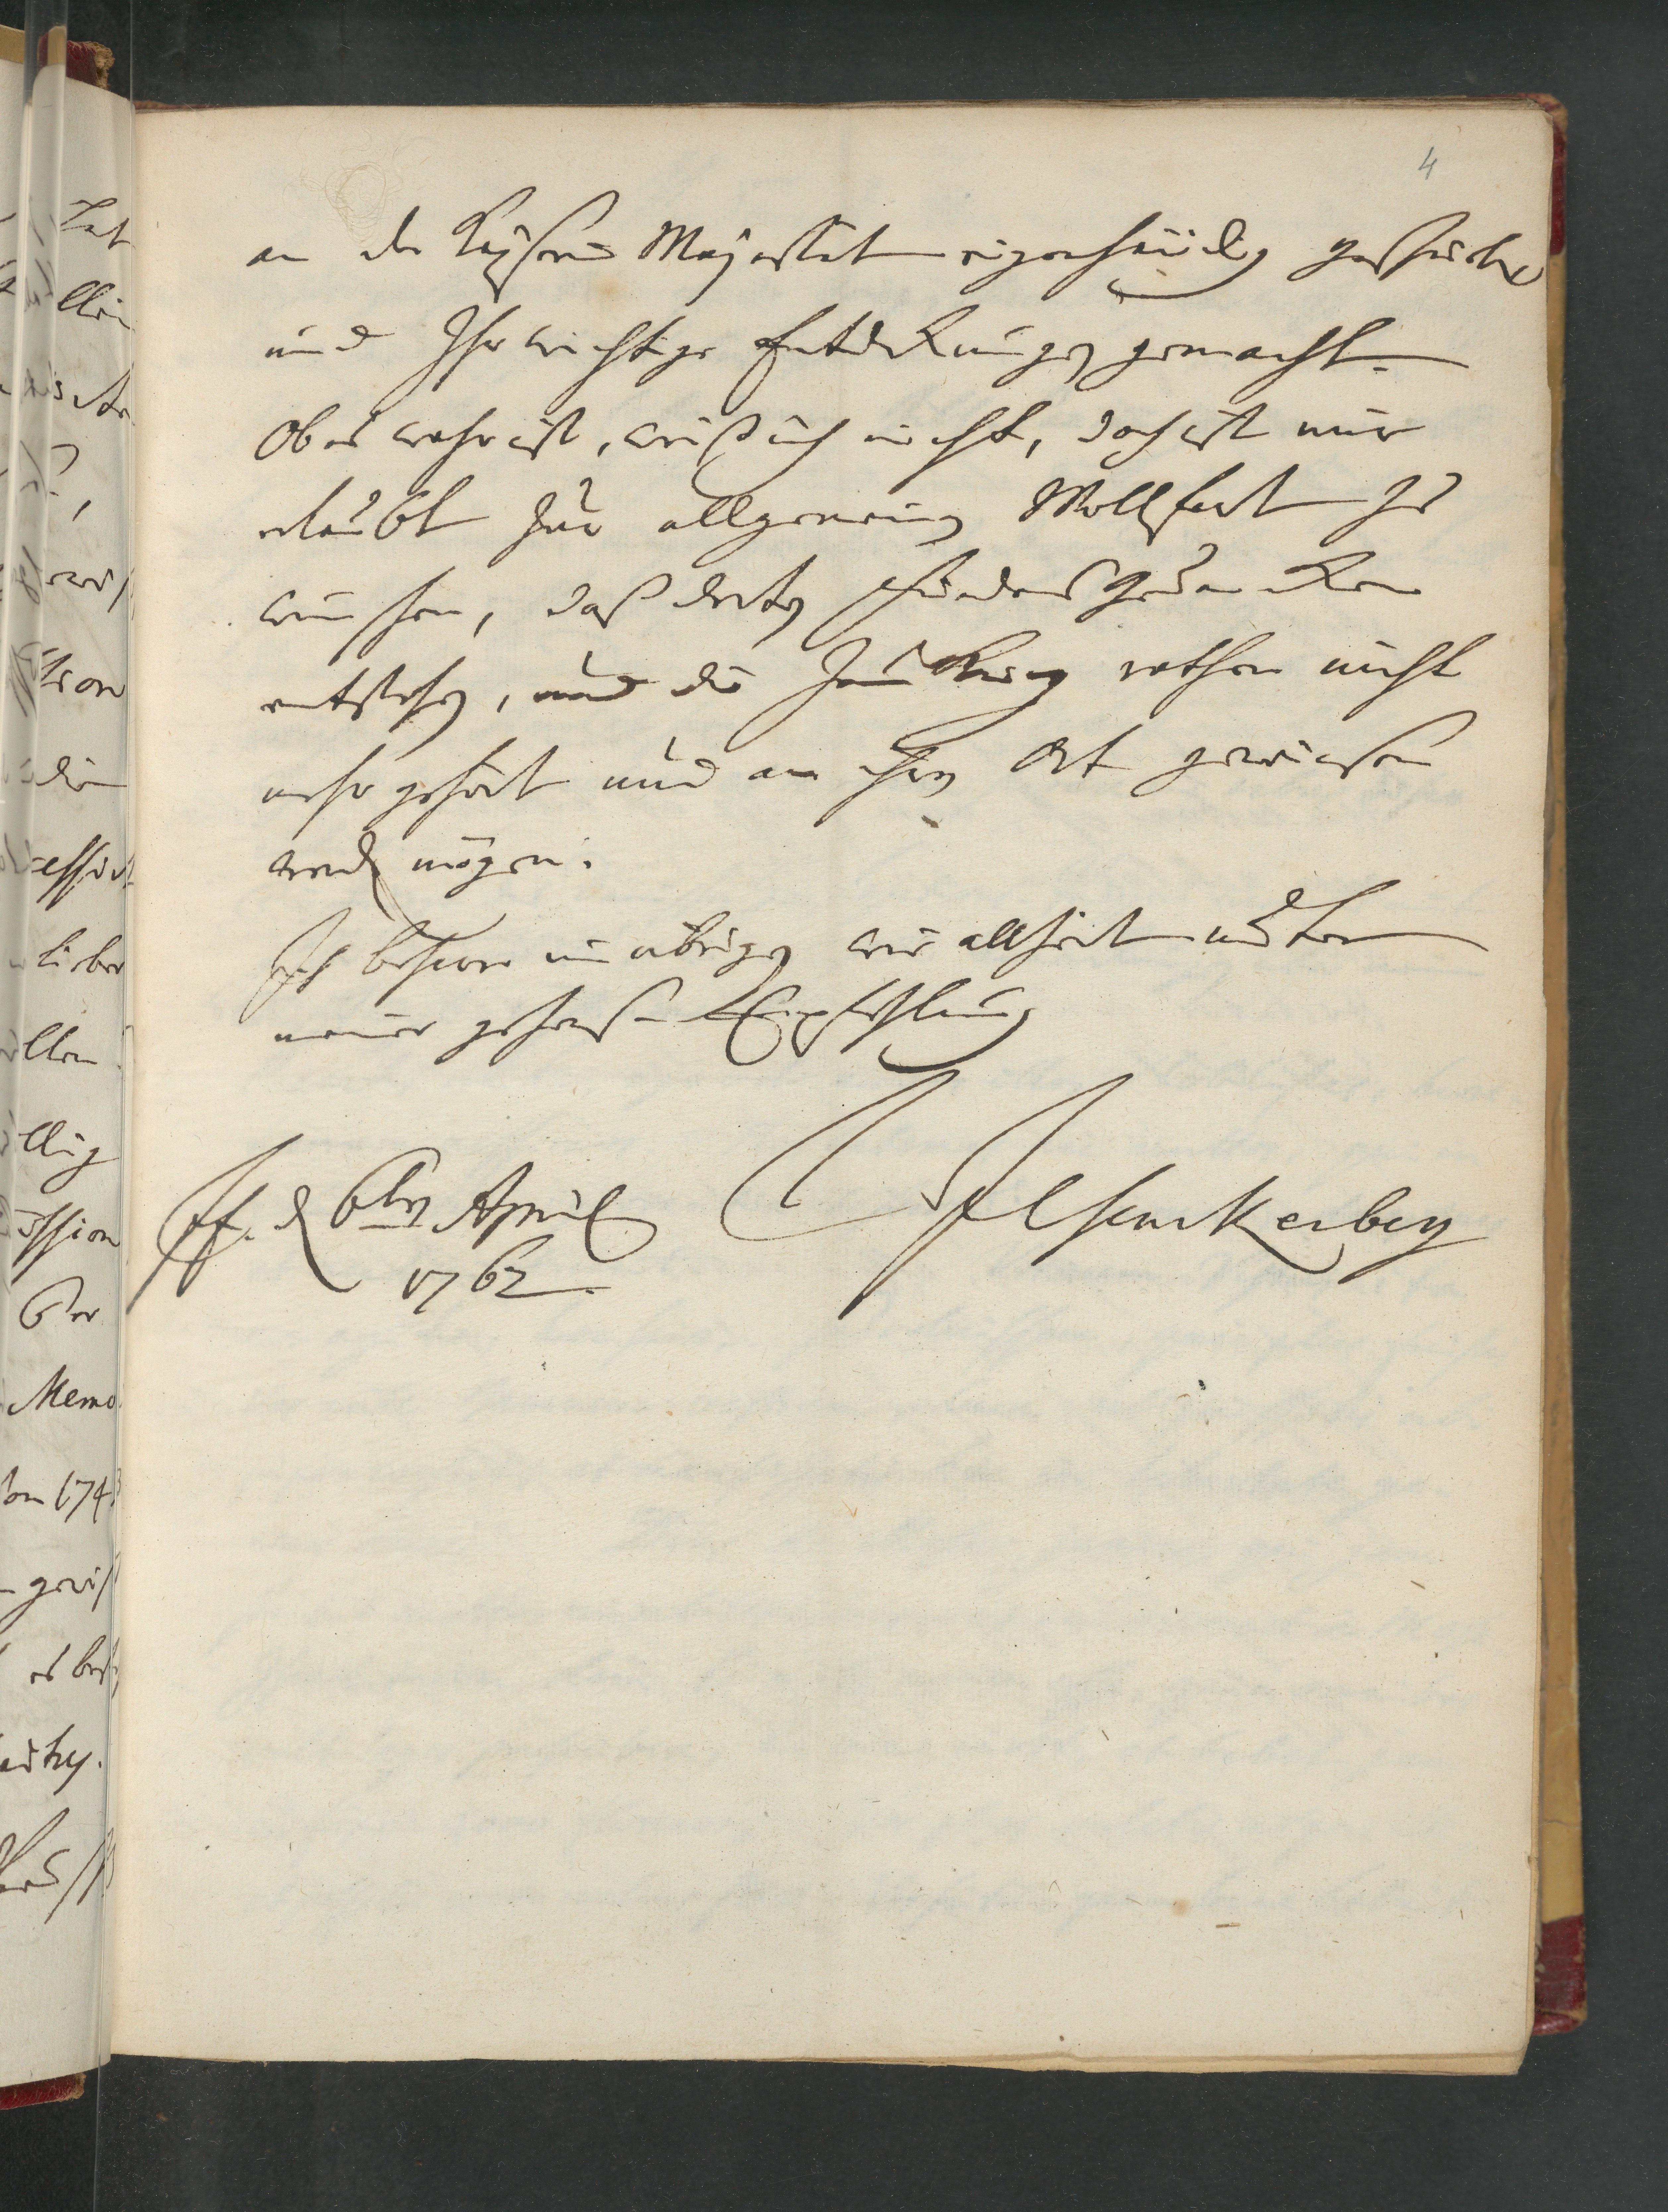 4
an der Kayserin Majestät eigenhändig geschrieben
und Ihr wichtige Entdeckungen gemacht.
Ob es wahr ist, weiß ich nicht, doch ist mir
erlaubt zur allgemeinen Wollfart zu
wünschen, daß dorten Friedensgedancken
entstehen, und die rathen nicht
mehr gehört und an ihren Ort gewiesen
werden mögen.
Ich beharre im übrigen wie allzeit unter
meiner gehorsa Empfehlung
Ff. d 6ten April
1762.